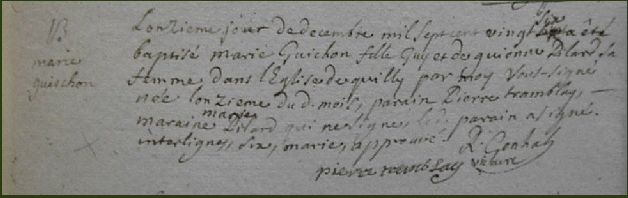 B
marie
guischon
Lonzieme jour de decembre mil sept cent vingt six a été
baptisé marie Guichon fille Guy et de Pilard sa
femme dans l'Eglise de quilly par moy sous-signé
née lonzieme du d. mois, parain Pierre tramblay,
maraine marie Pilard qui ne signe, le d. parain a signé.
interlignes, six, marie, approuvé.
pierre tramblay vicaire